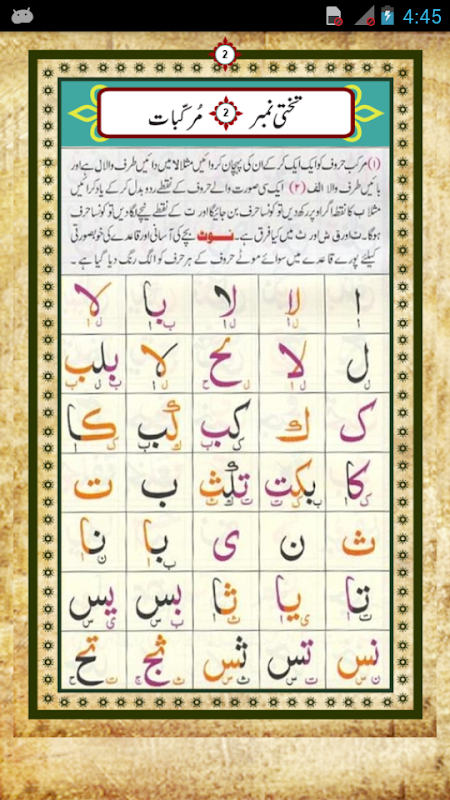 4:45
2
تختی نمبر 2 مُرکّبات
(۱) مرکب حروف کو ایک ایک کر کے ان کی پہچان کروائیں مثلا لا میں دائیں طرف والا ل ہے اور
بائیں طرف والا الف (۲) ایک سی صورت والے حروف کے نقطے ردوبدل کر کے یاد کرائیں
مثلا ب کا نقطہ اگر اوپر رکھ دیں تو کونسا حرف بن جائیگا اور ت کے نقطے نیچے لگا دیں تو کونسا حرف
ہوگا۔ ت اور ق ش اور ث میں کیا فرق ہے۔ نوٹ بچے کی آسانی اور قاعدے کی خوبصورتی
کیلئے پورے قاعدے میں سوائے موٹے حروف کے ہر حرف کو الگ رنگ دیا گیا ہے۔
ا لا لا با لا
ل لا لح لا بلب
ک ك کب كب کا
کا بکت تكث ب ت
ث ن ی با نا
تا یا ثا بس یس
نس تس ثس ثج تح